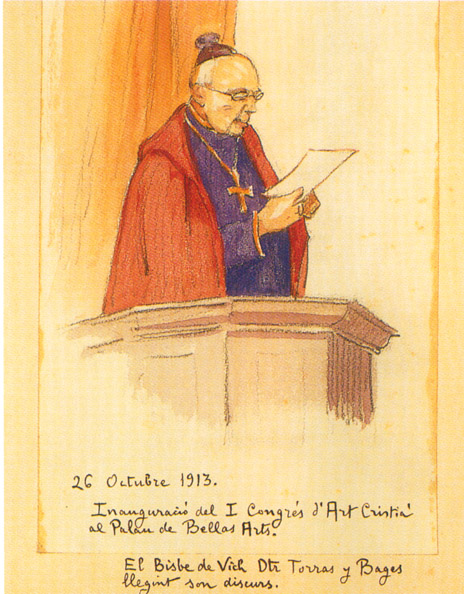 26 Octubre 1913.
Inauguració del I Congrés d'Art Cristiá
al Palau de Bellas Arts.
El Bisbe de Vich Dtr Torras y Bages
llegint son discurs.